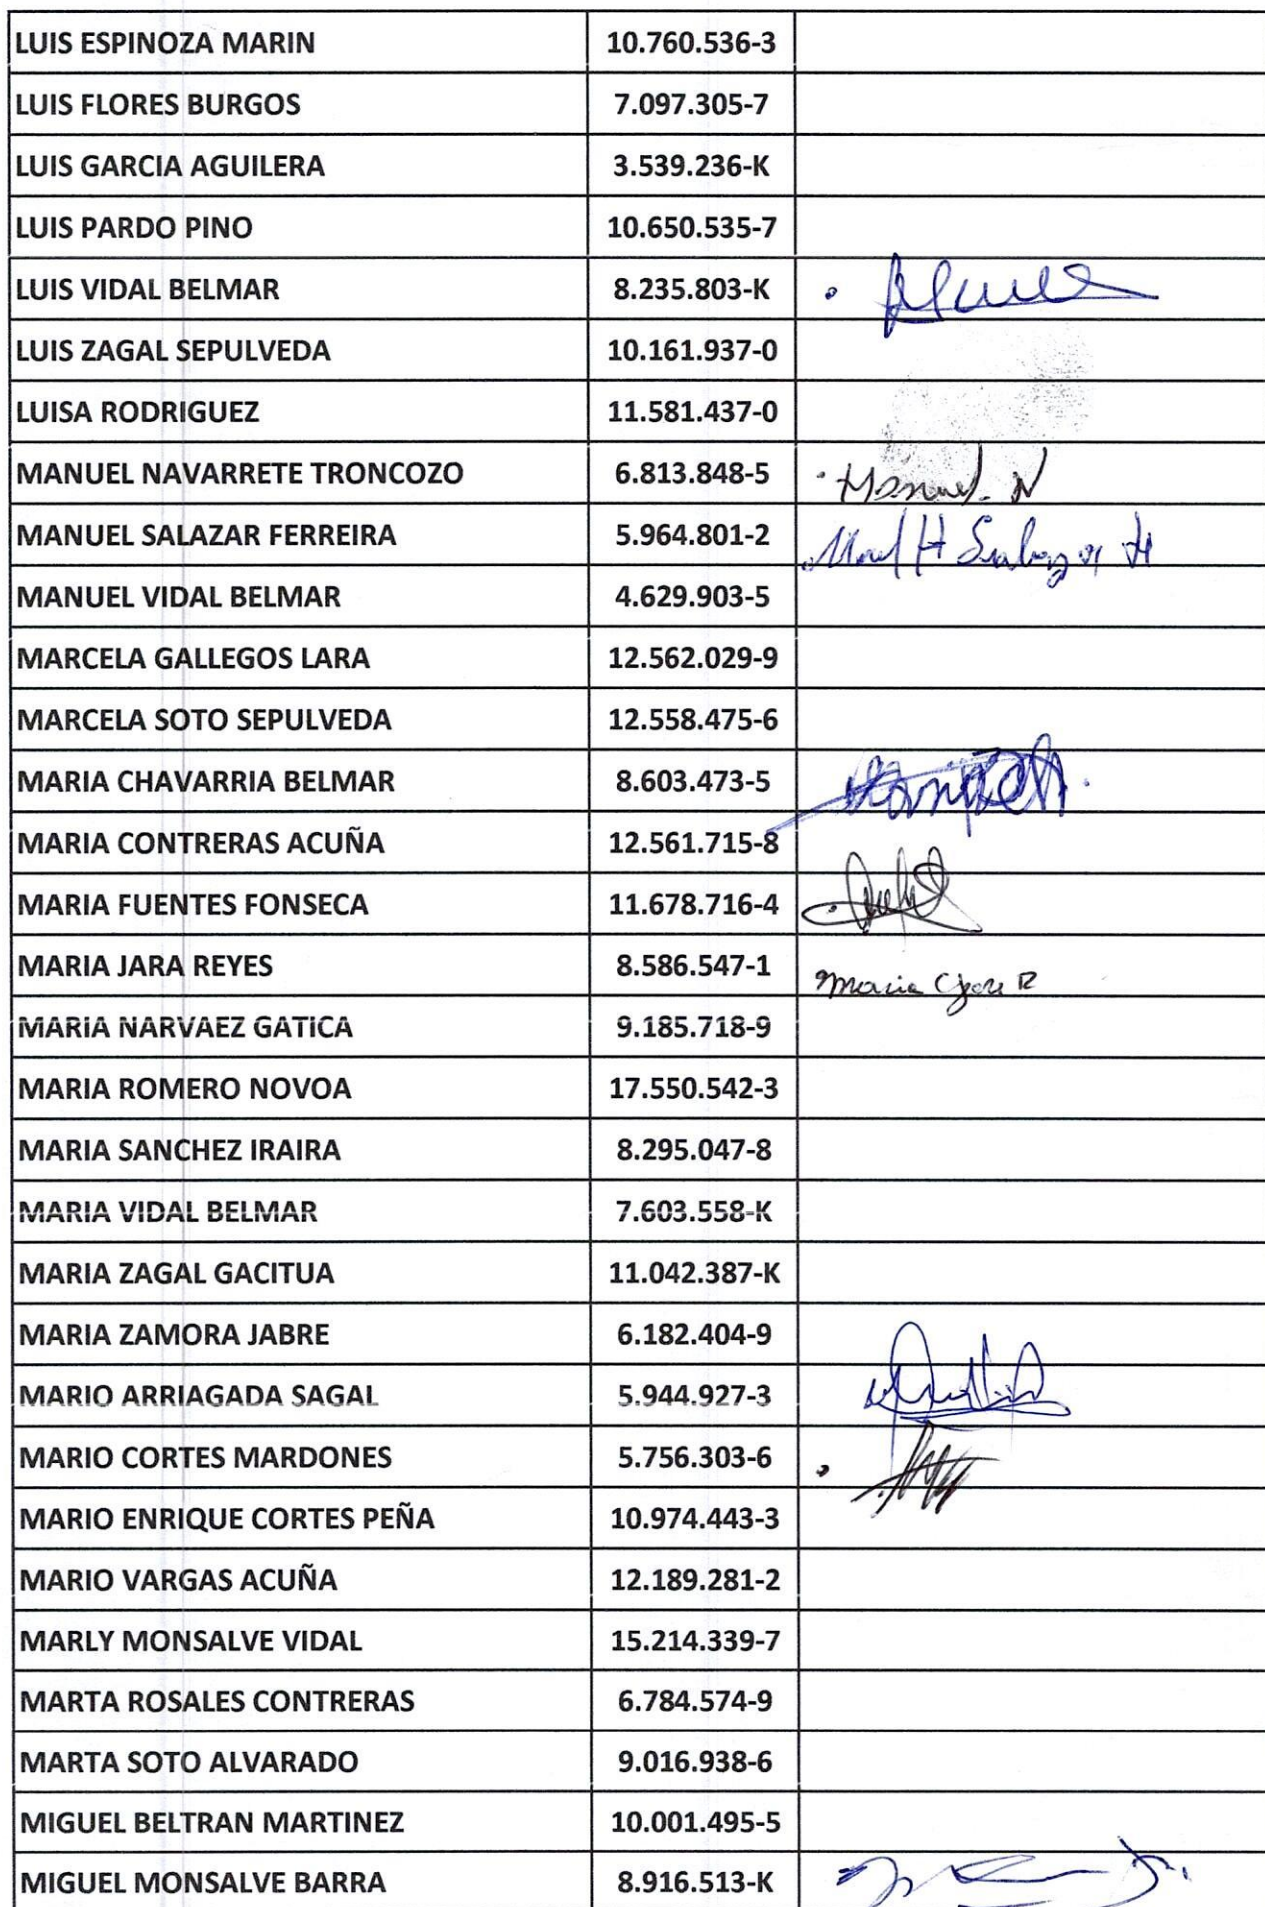 LUIS ESPINOZA MARIN 10.760.536-3
LUIS FLORES BURGOS 7.097.305-7
LUIS GARCIA AGUILERA 3.539.236-K
LUIS PARDO PINO 10.650.535-7
LUIS VIDAL BELMAR 8.235.803-K
LUIS ZAGAL SEPULVEDA 10.161.937-0
LUISA RODRIGUEZ 11.581.437-0
MANUEL NAVARRETE TRONCOZO 6.813.848-5 Manuel. N
MANUEL SALAZAR FERREIRA 5.964.801-2
MANUEL VIDAL BELMAR 4.629.903-5
MARCELA GALLEGOS LARA 12.562.029-9
MARCELA SOTO SEPULVEDA 12.558.475-6
MARIA CHAVARRIA BELMAR 8.603.473-5
MARIA CONTRERAS ACUÑA 12.561.715-8
MARIA FUENTES FONSECA 11.678.716-4
MARIA JARA REYES 8.586.547-1 Maria Jara R
MARIA NARVAEZ GATICA 9.185.718-9
MARIA ROMERO NOVOA 17.550.542-3
MARIA SANCHEZ IRAIRA 8.295.047-8
MARIA VIDAL BELMAR 7.603.558-K
MARIA ZAGAL GACITUA 11.042.387-K
MARIA ZAMORA JABRE 6.182.404-9
MARIO ARRIAGADA SAGAL 5.944.927-3
MARIO CORTES MARDONES 5.756.303-6
MARIO ENRIQUE CORTES PEÑA 10.974.443-3
MARIO VARGAS ACUÑA 12.189.281-2
MARLY MONSALVE VIDAL 15.214.339-7
MARTA ROSALES CONTRERAS 6.784.574-9
MARTA SOTO ALVARADO 9.016.938-6
MIGUEL BELTRAN MARTINEZ 10.001.495-5
MIGUEL MONSALVE BARRA 8.916.513-K